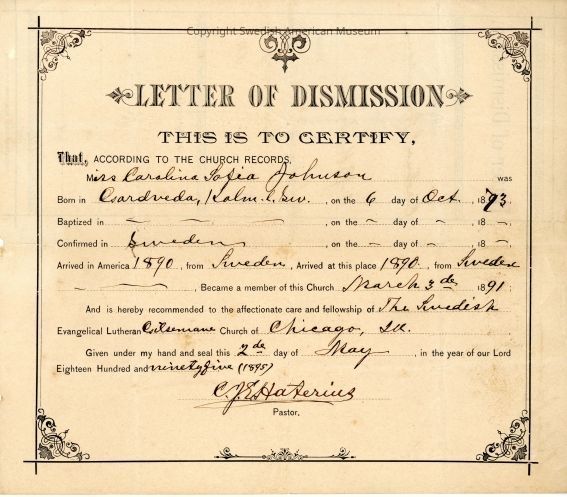 Copyright Swedish American Museum
LETTER OF DISMISSION
THIS IS TO CERTIFY,
That, ACCORDING TO THE CHURCH RECORDS,
Miss Carolina Sofia Johnson was
Born in Kalm. L. Sw. , on the 6 day of Oct. , 1873.
Baptized in — — — , on the — day of — , 18 —
Confirmed in Sweden , on the — day of — 18 —
Arrived in America 1890 , from Sweden , Arrived at this place 1890 , from Sweden
— — — , Became a member of this Church March 3de 1891;
And is hereby recommended to the affectionate care and fellowship of The Swedish
Evangelical Lutheran Church of Chicago, Ill.
Given under my hand and seal this 2de day of May , in the year of our Lord
Eighteen Hundred and ninetyfive (1895)
C.J.E. Haterius
Pastor.